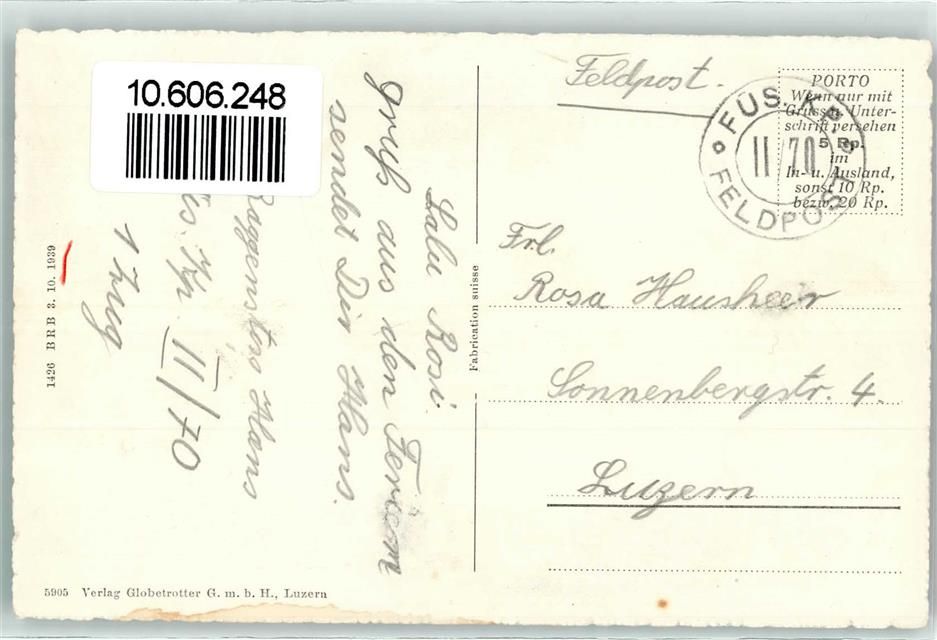 10.606.248
Feldpost.
PORTO
Wenn nur mit
Gruss u. Unter-
schrift versehen
5 Rp.
im
In- u. Ausland,
sonst 10 Rp.
bezw. 20 Rp.
FÜS. KP.
II 70
FELDPOST
Salu Rosi.
Gruß aus den Ferien
sendet Dir Hans.
Hans
Kp. III/70
1 Zug
Frl.
Rosa Hausheer
Sonnenbergstr. 4.
Luzern
Fabrication suisse
1426 BRB 3. 10. 1939
5905 Verlag Globetrotter G. m. b. H., Luzern